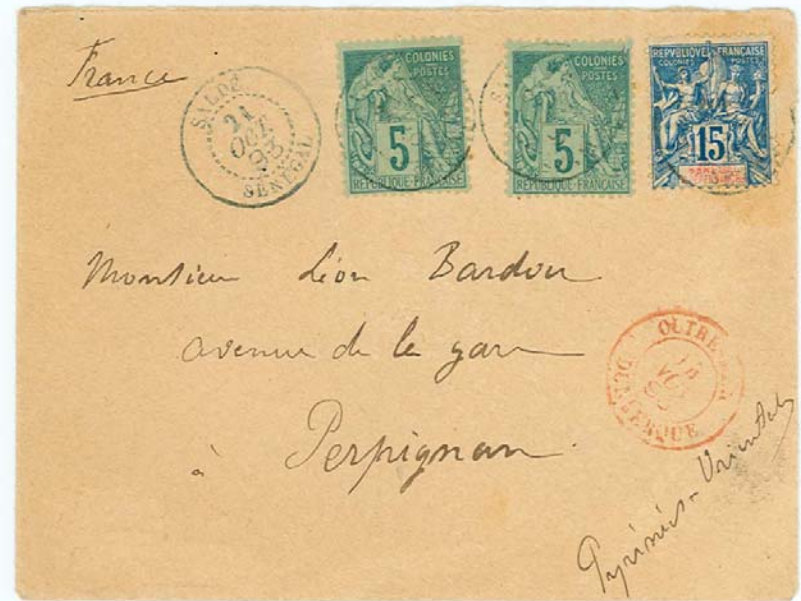 France
SALDÉ
21
OCT
93
SÉNÉGAL
COLONIES
POSTES
5
RÉPUBLIQUE-FRANÇAISE
COLONIES
POSTES
5
RÉPUBLIQUE-FRANÇAISE
REPVBLIQVE FRANÇAISE
COLONIES POSTES
15
Monsieur Léon Bardou
avenue de la gare
à Perpignan
OUTRE-MER
14
DUNKERQUE
Pyrénées-Orientales